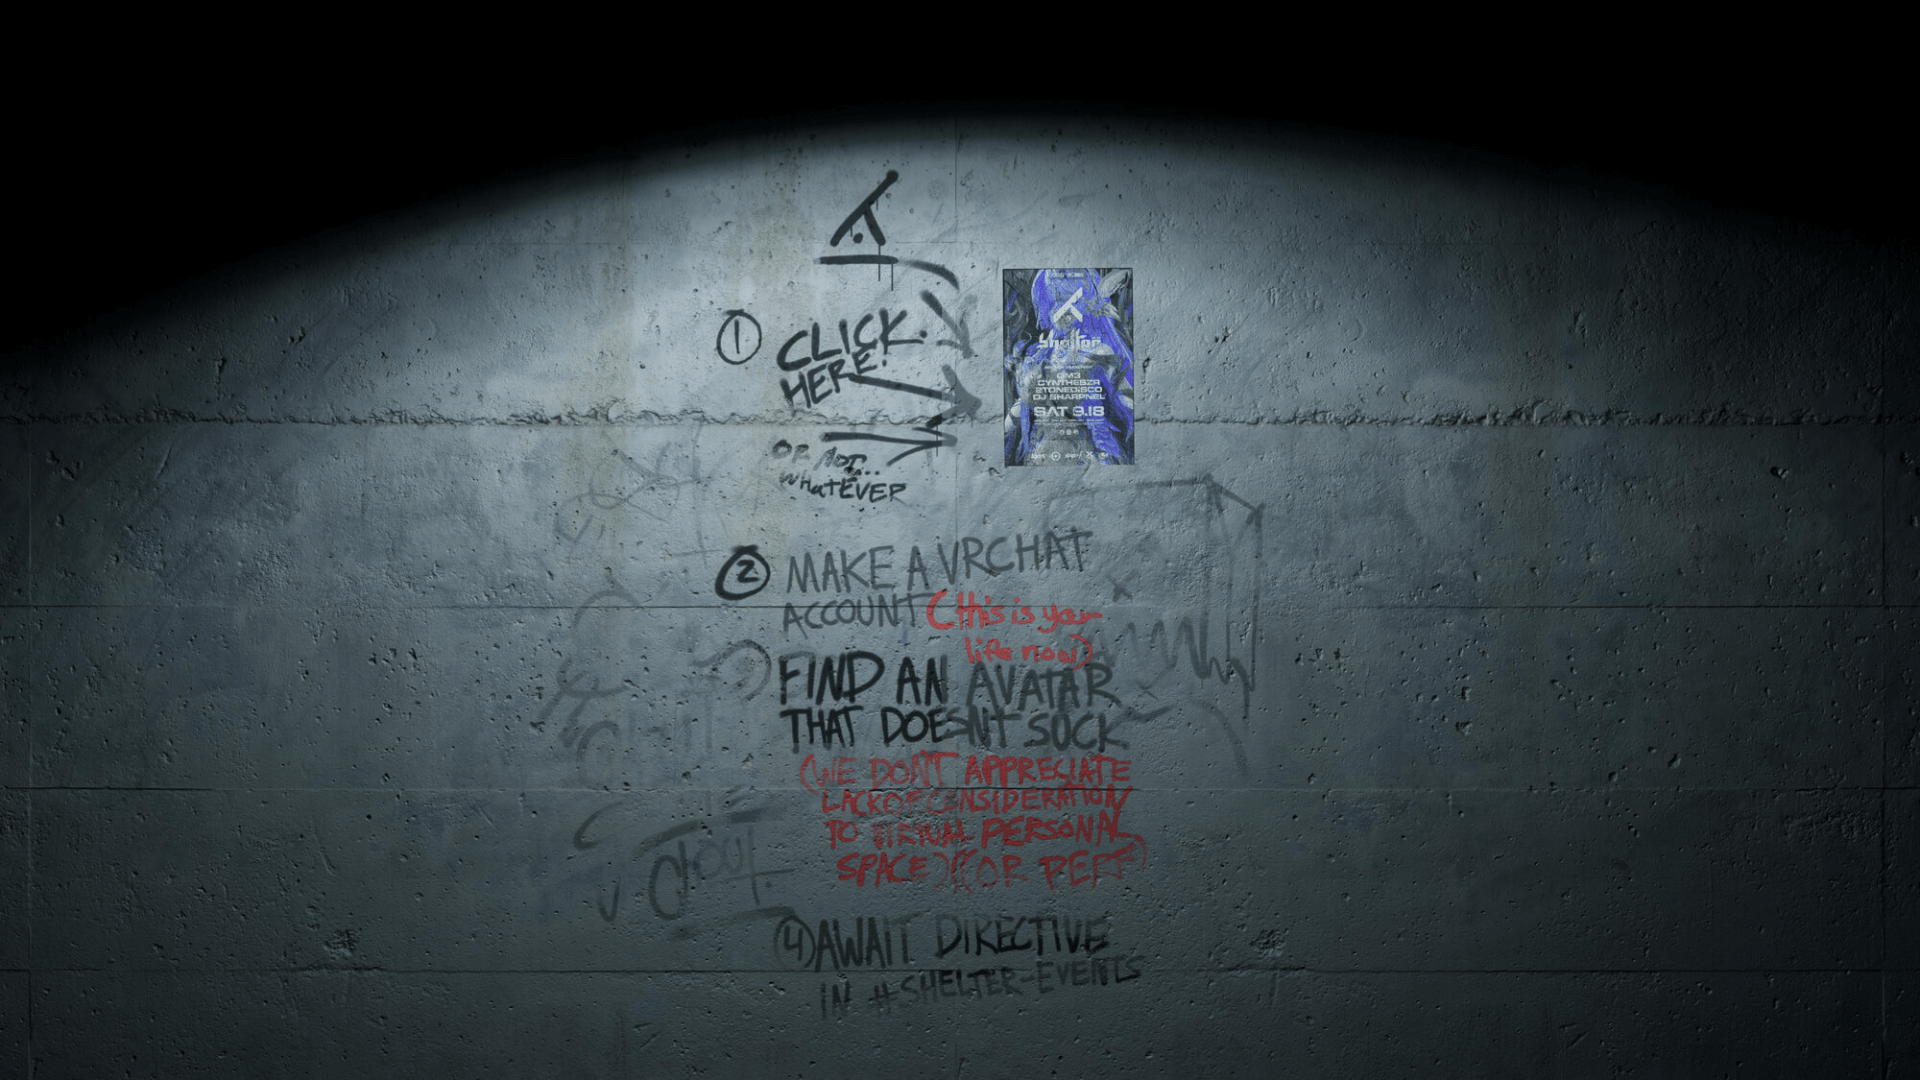 1
CLICK
HERE.
OR NOT...
WHATEVER
Shelter
GM3
CYNTHESZR
STONEDISCO
DJ SHARPNEL
SAT 9.18
2
MAKE A VRCHAT
ACCOUNT (this is your
life now)
FIND AN AVATAR
THAT DOESNT SUCK
(WE DON'T APPRECIATE
LACK OF CONSIDERATION
TO VIRTUAL PERSONAL
SPACE) (OR PERF)
4 AWAIT DIRECTIVE
IN #SHELTER-EVENTS